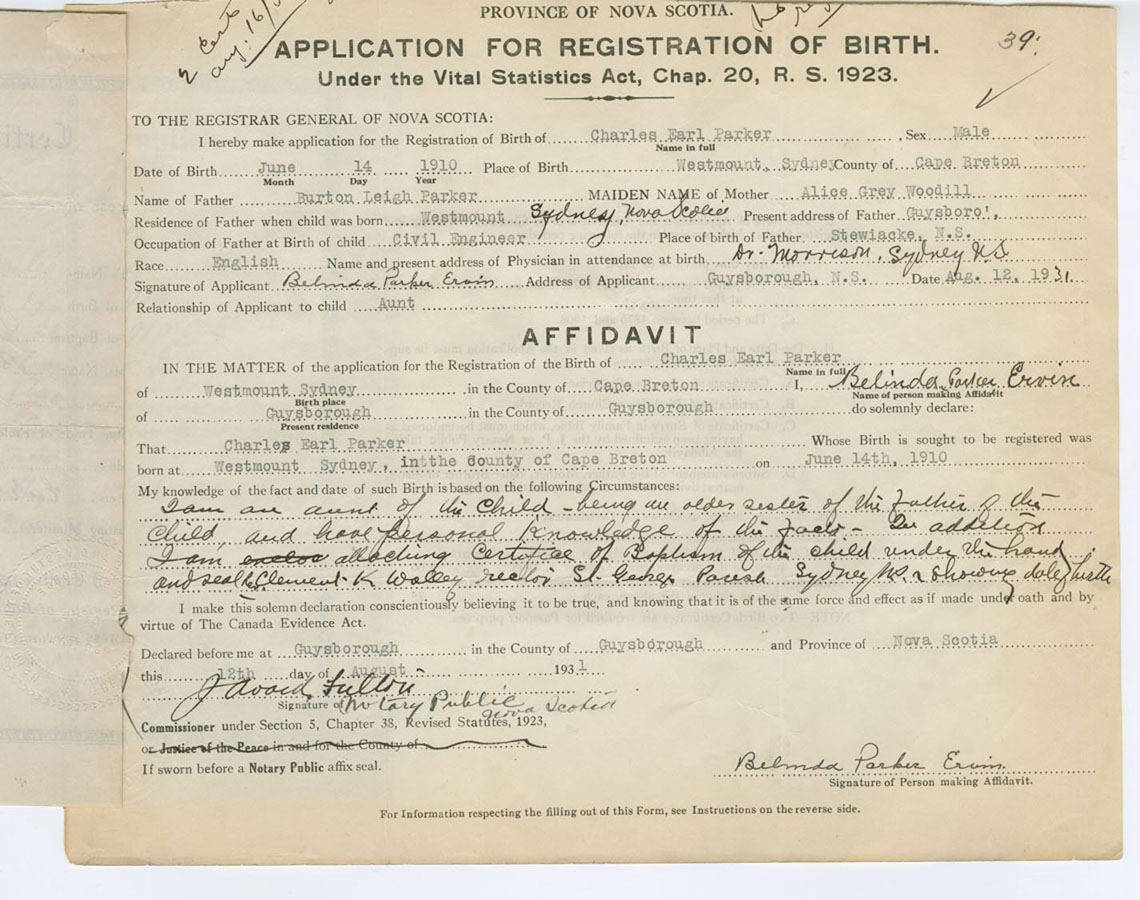 PROVINCE OF NOVA SCOTIA.
2 Certs Aug. 16/
APPLICATION FOR REGISTRATION OF BIRTH.
39.
Under the Vital Statistics Act, Chap. 20, R. S. 1923.
TO THE REGISTRAR GENERAL OF NOVA SCOTIA:
I hereby make application for the Registration of Birth of Charles Earl Parker, Sex Male
Name in full
Date of Birth June 14 1910 Place of Birth Westmount, Sydney County of Cape Breton
Month Day Year
Name of Father Burton Leigh Parker MAIDEN NAME of Mother Alice Grey Woodill
Residence of Father when child was born Westmount Sydney, Nova Scotia Present address of Father Guysboro',
Occupation of Father at Birth of child Civil Engineer Place of birth of Father Stewiacke, N.S.
Race English Name and present address of Physician in attendance at birth Dr. Morrison, Sydney N.S.
Signature of Applicant Belinda Parker Ervin Address of Applicant Guysborough, N.S. Date Aug. 12, 1931.
Relationship of Applicant to child Aunt
AFFIDAVIT
IN THE MATTER of the application for the Registration of the Birth of Charles Earl Parker
Name in full
of Westmount Sydney in the County of Cape Breton I, Belinda Parker Ervin
Birth place Name of person making Affidavit
of Guysborough in the County of Guysborough do solemnly declare:
Present residence
That Charles Earl Parker Whose Birth is sought to be registered was
born at Westmount Sydney, in the County of Cape Breton on June 14th, 1910
My knowledge of the fact and date of such Birth is based on the following Circumstances:
I am an aunt of the Child - being an older sister of the Father of the
Child, and have personal knowledge of the facts - In addition
I am attaching Certificate of Baptism of the child under the hand
and seal of Clement K Walley rector St. Georges Parish Sydney NS. showing date of birth
I make this solemn declaration conscientiously believing it to be true, and knowing that it is of the same force and effect as if made under oath and by
virtue of The Canada Evidence Act.
Declared before me at Guysborough in the County of Guysborough and Province of Nova Scotia
this 12th day of August 1931
J Avard Fulton
Signature of Notary Public
Nova Scotia
Commissioner under Section 5, Chapter 38, Revised Statutes, 1923,
or Justice of the Peace in and for the County of
If sworn before a Notary Public affix seal.
Belinda Parker Ervin
Signature of Person making Affidavit.
For Information respecting the filling out of this Form, see Instructions on the reverse side.